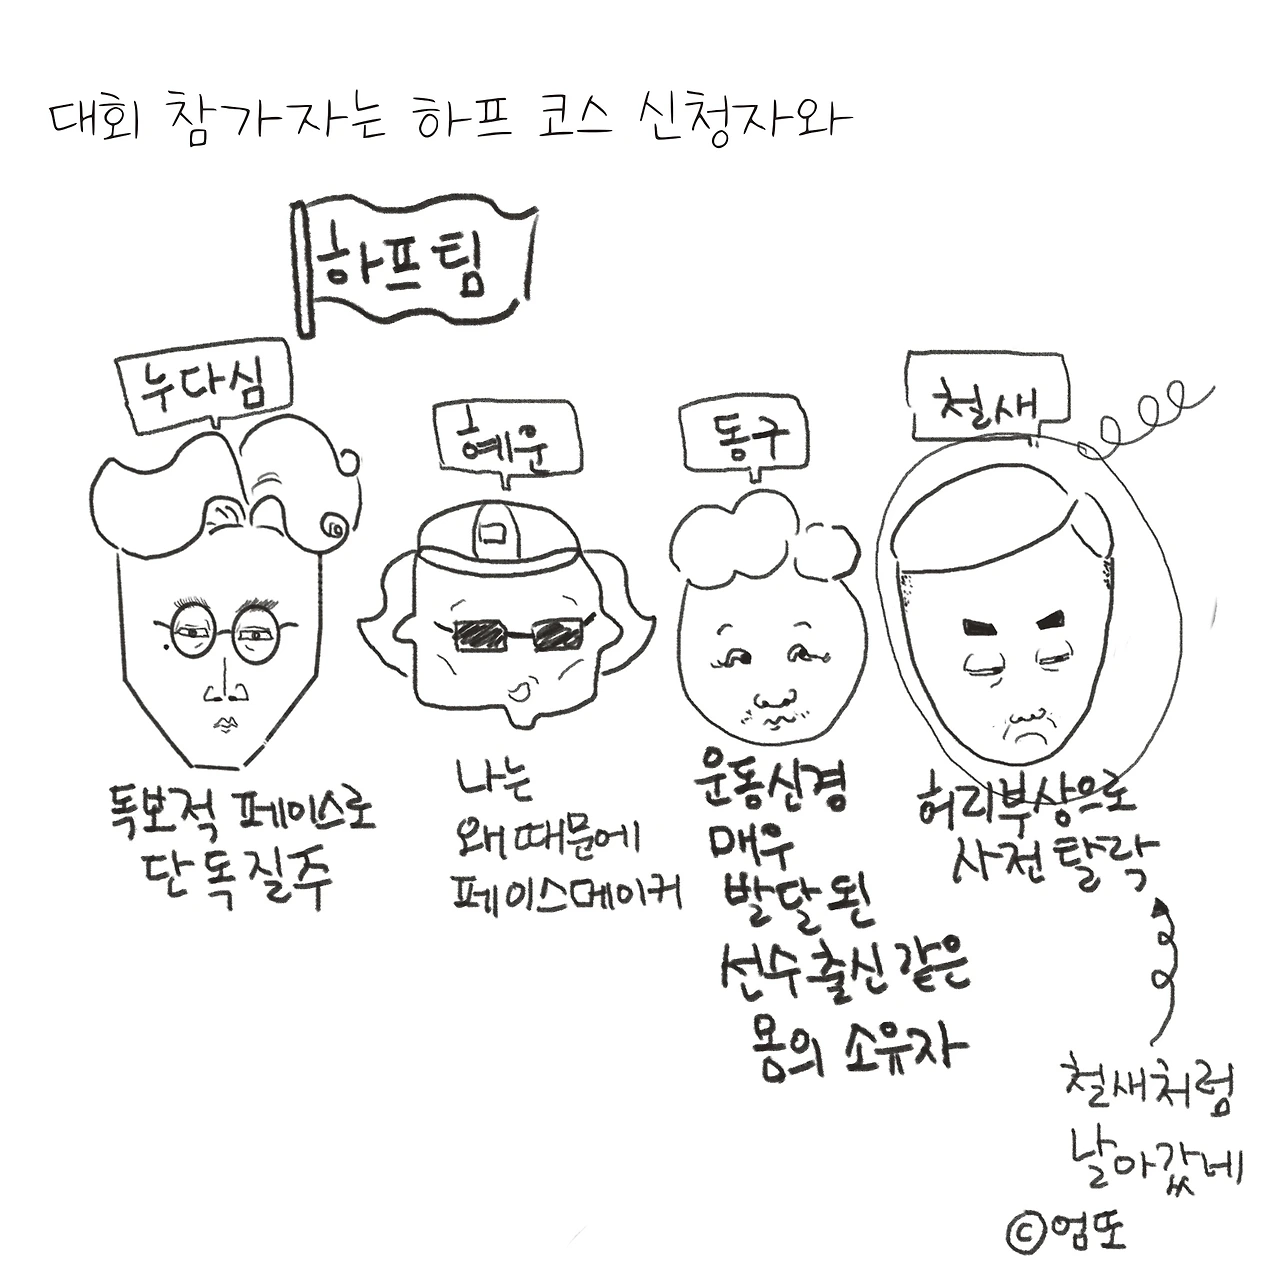 대회 참가자는 하프 코스 신청자와
하프팀
누다심
혜운
동구
철새
독보적 페이스로
단독질주
나는
왜때문에
페이스메이커
운동신경
매우
발달된
선수출신같은
몸의 소유자
허리부상으로
사전탈락
철새처럼
날아갔네
©엄또